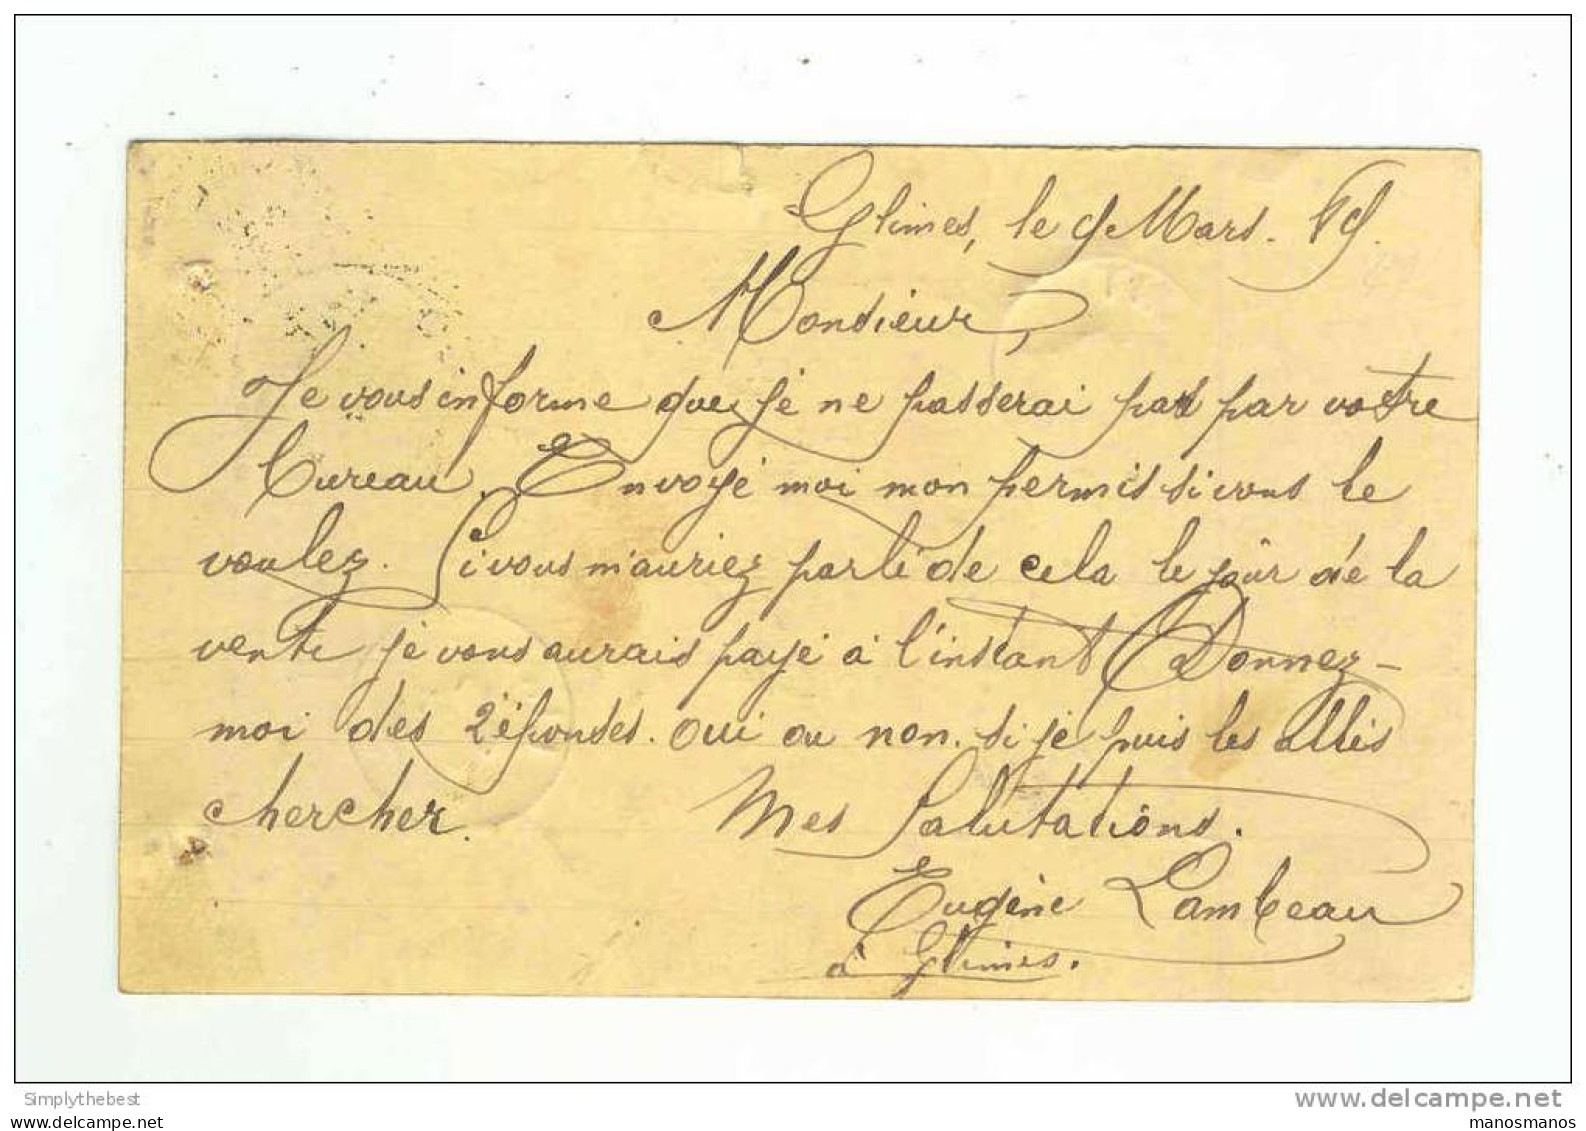 Glimes, le 9 Mars. 89.
Monsieur,
Je vous informe que je ne passerai pas par votre
bureau. Envoyé moi mon permis si vous le
voulez. Si vous m'auriez parlé de cela le jour de la
vente je vous aurais payé à l'instant Donnez-
moi des réponses. oui ou non. si je puis les allés
chercher. Mes Salutations.
Eugène Lambeau
à Glimes.
Simplythebest
www.delcampe.net
manosmanos